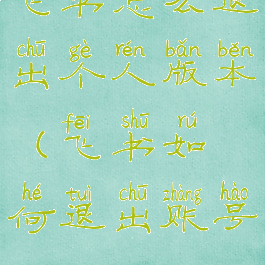 飞书怎么退
chū gè rén bǎn běn
出个人版本
fēi shū rú
（飞书如
hé tuì chū zhàng hào
何退出账号